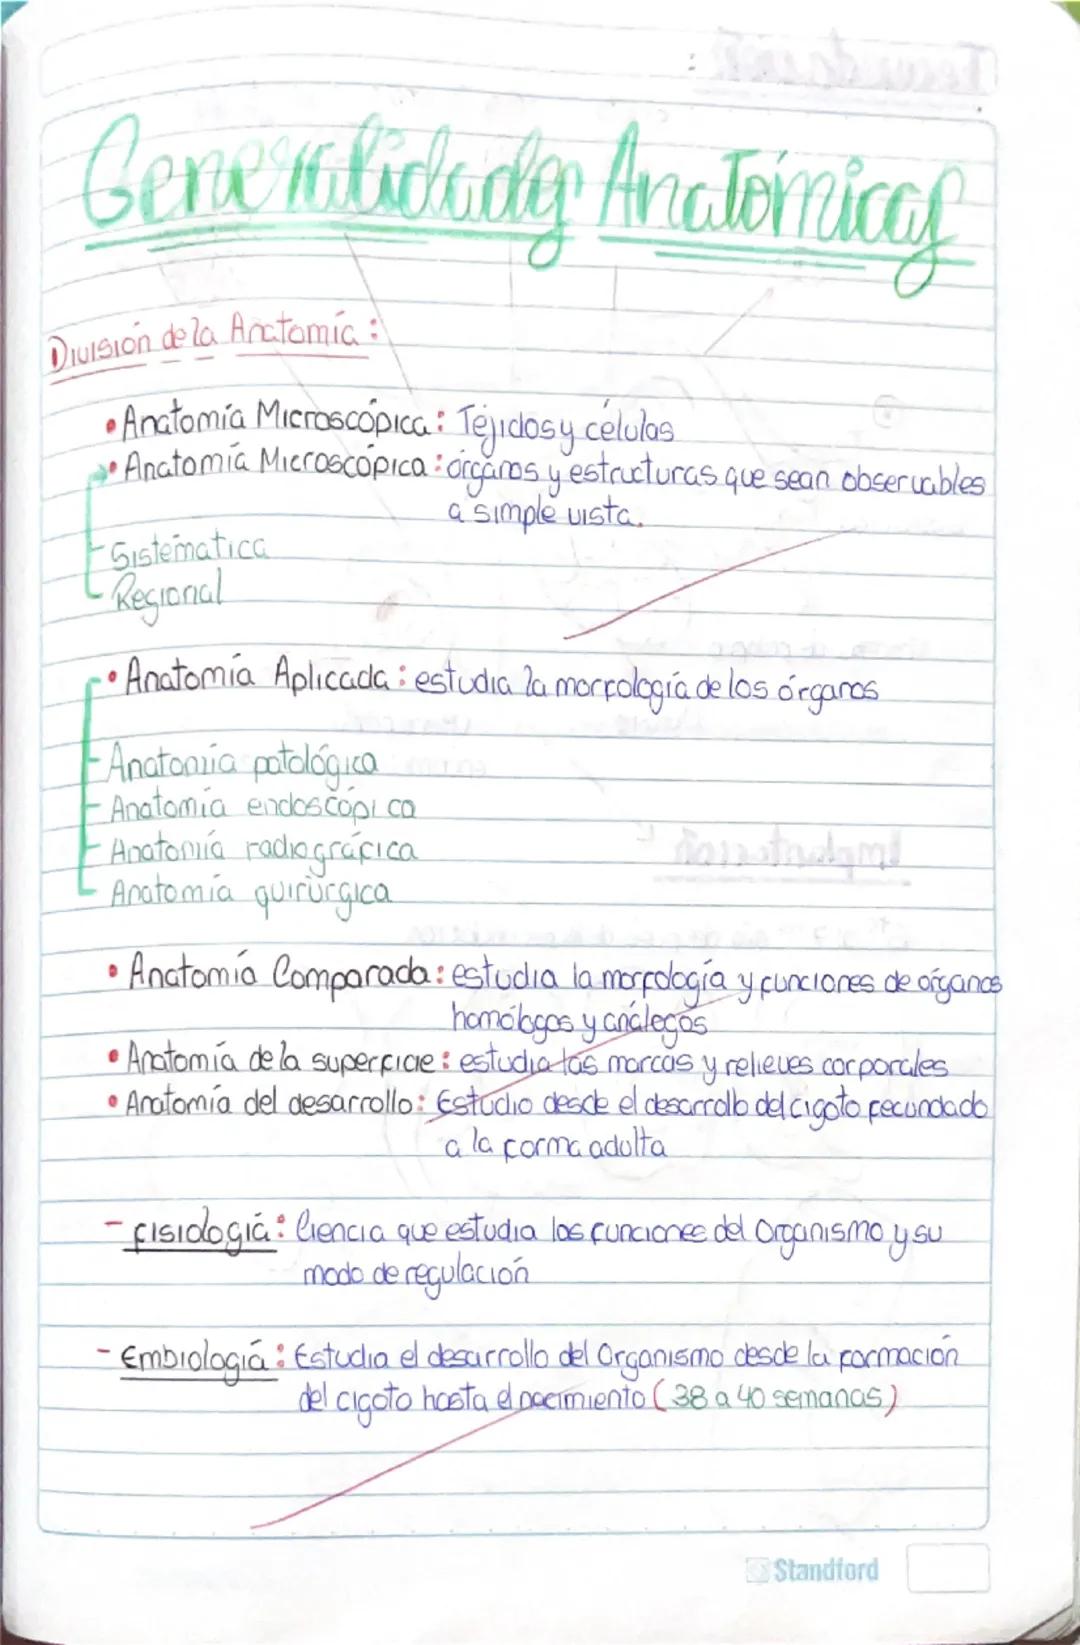 Generalidades Anatómicas
División de la Anatomía:
• Anatomía Microscópica: Téjidos y células
• Anatomía Microscópica: órganos y estructuras que sean observables
a simple vista.
Sistematica
Regional
• Anatomía Aplicada: estudia la morfología de los órganos
Anatomía patológica
Anatomía endoscópica
Anatomía radiográfica
Anatomía quirúrgica
• Anatomía Comparada: estudia la morfología y funciones de órganos
homólogos y análegos
• Anatomía de la superficie: estudia las marcas y relieves corporales
• Anatomía del desarrollo: Estudio desde el desarrollo del cigoto fecundado
a la forma adulta
- fisiología: Ciencia que estudia las funciones del Organismo y su
modo de regulación
- Embiología: Estudia el desarrollo del Organismo desde la formación
del cigoto hasta el nacimiento (38 a 40 semanas)
Standford